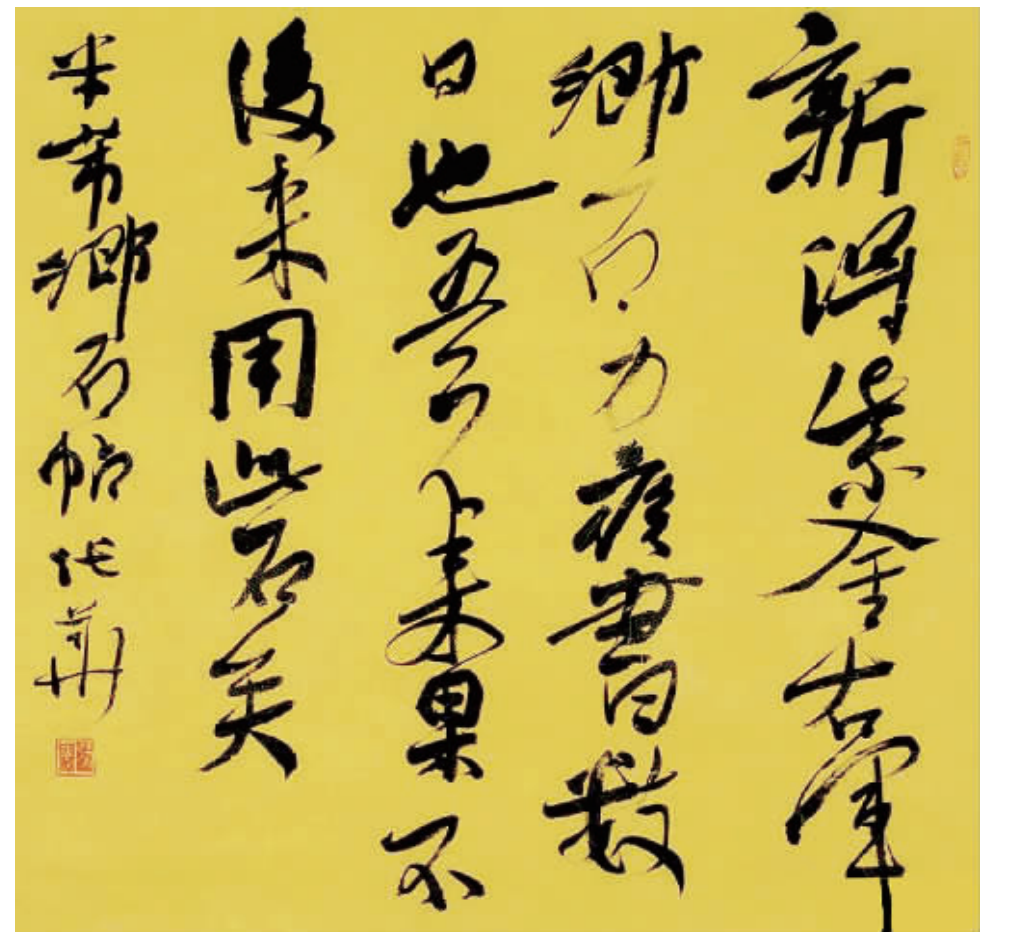 新得紫金右軍
鄉石力疾書數
日也吾不來果不
復來用此石矣
米芾鄉石帖